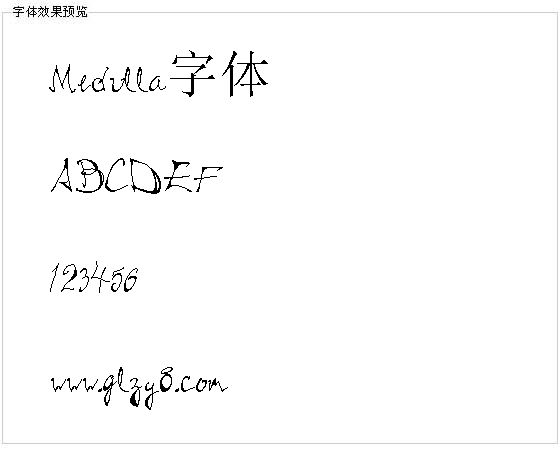 字体效果预览
Medulla字体
ABCDEF
123456
www.glzy8.com